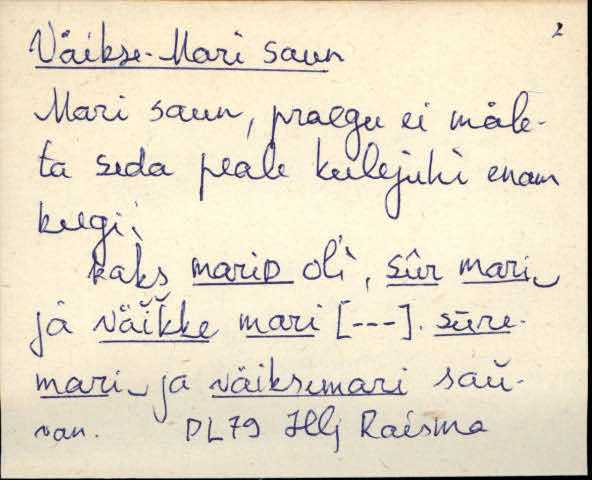 2
Väikse-Mari saun
Mari saun, praegu ei mäle-
ta seda peale keelejuhi enam
keegi:
kaks mariD oli, sūr mari
jà väĭkke mari [---]. sūre-
mari ja väiksemari saŭ-
nan. DLT9 Hlj Raisma